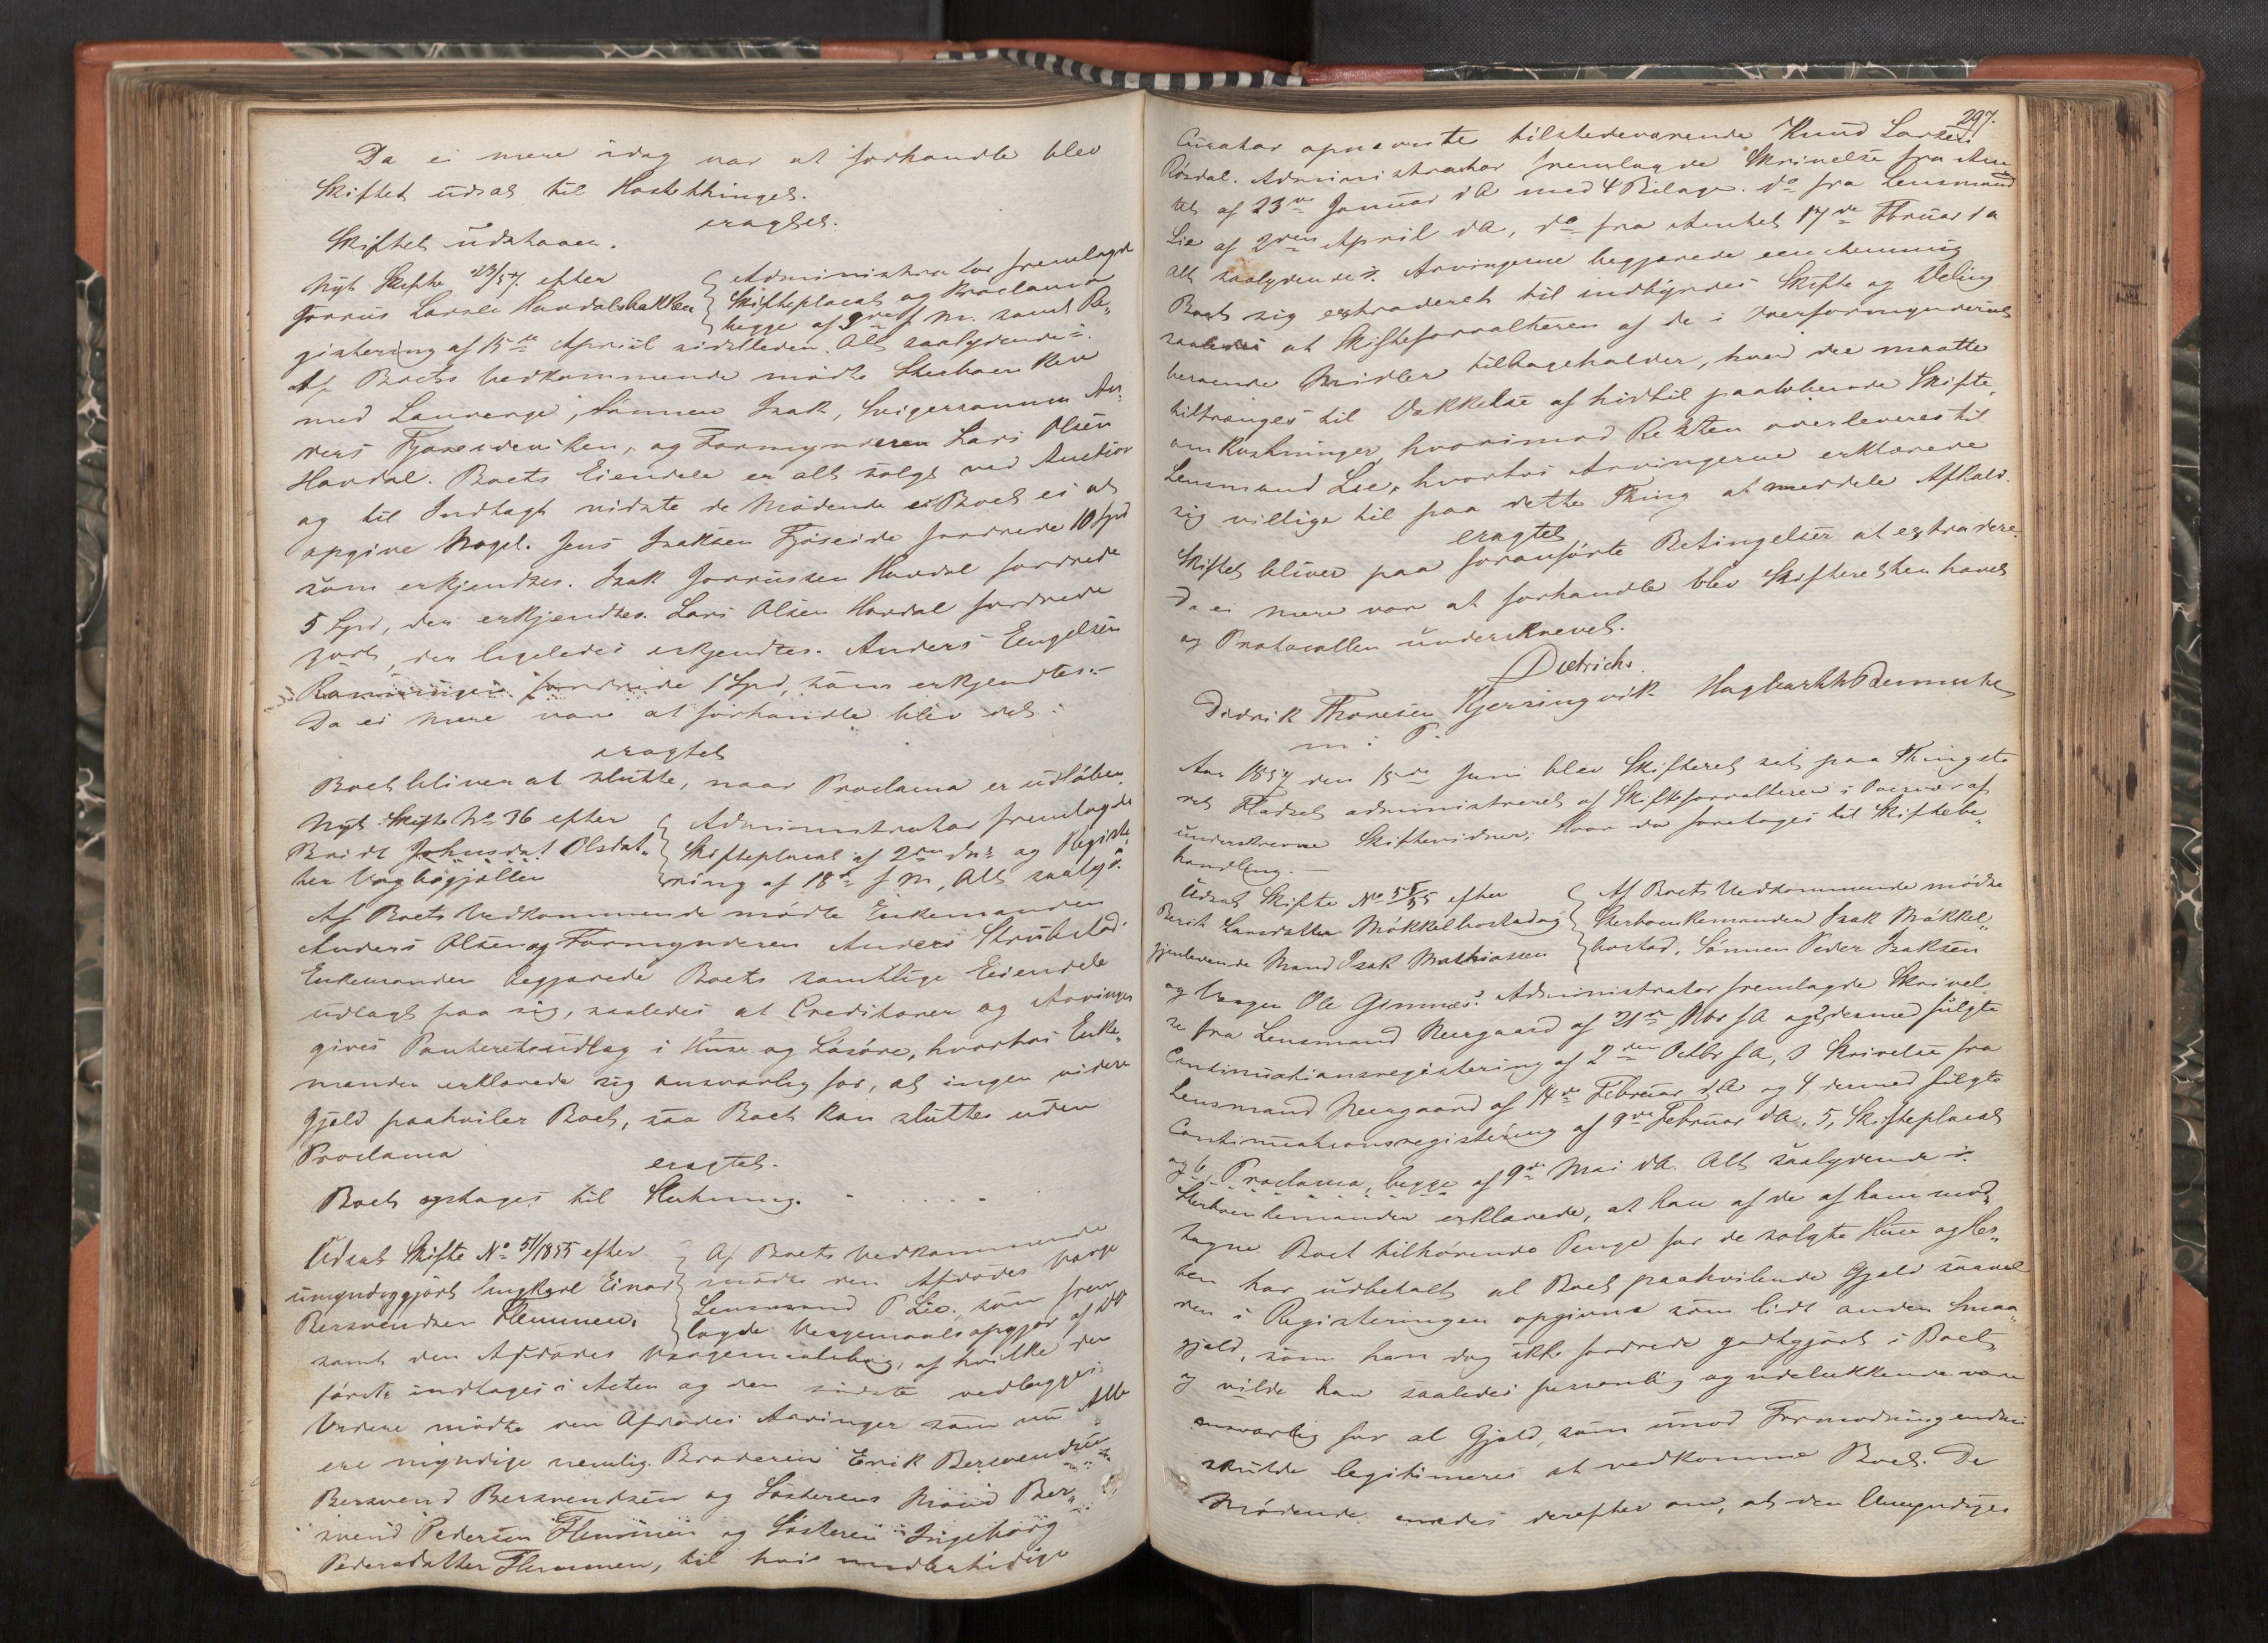 Da ei mere idag var at forhandle blev
Skiftet udsat til Høstthinget.
eragtet.
Skiftet udstaaer.
Nyt Skifte 23/57 efter
Jorrus Larsen Havdalsbakken
Administrator fremlagde
Skifteplacat og Proclama
begge af 9de f. M. samt Re„
gistering af 15de April sidstleden. Alt saalydende :/:
Af Boets Vedkommende mødte Sterboen ken
med Laurenge, Sønnen Isak, Svigersønnen An„
ders Fjøseideviken, og Formynderen Lars Olsen
Havdal. Boets Eiendele er alt solgt ved Auction
og til Indtægt vidste de Mødende Boet ei at
opgive Noget. Jens Isaksen Fjøseide fordrede 10 Spd
som erkjendtes. Isak Jorrussen Havdal fordrede
5 Spd, der erkjendtes. Lars Olsen Havdal fordrede
5 ort, der ligeledes erkjendtes. Anders Engelsen
fordrede 1 Spd, som erkjendtes.–
Da ei mere var at forhandle blev det
eragtet
Boet bliver at slutte, naar Proclama er udløben.
Nyt Skifte No 36 efter
Berit Johnsdat Olsdat„
ter Vaghøgjøllen
Administrator fremlagde
Skifteplacat af 2den ds og Registe„
ring af 18de f M, Alt saalyd.
Af Boets Vedkommende mødte Enkemanden
Anders Olsen og Formynderen Anders Strubstad.
Enkemanden begjærede Boets samtlige Eiendele
udlagt paa sig, saaledes at Creditorer og Arvinger
gives Panteretsudlæg i Huse og Løsøre, hvorhos Enke„
manden erklærede sig ansvarlig for, at ingen videre
Gjæld paahviler Boet, saa Boet kan sluttes uden
Proclama
eragtet.
Boet optages til Slutning.
Udsat Skifte No 51/1855 efter
umyndiggjort Ungkarl Einar
Bersvendsen Flemmen.
Af Boets Vedkommende
mødte den Afdødes Værge
Lensmand P Lie, som frem
lagde Værgemaalsopgjør af
samt den Afdødes Værgemaalsbog, af hvilke den
første indtages i Acten og den sidste vedlægges.
Videre mødte den Afdødes Arvinger som nu Alle
ere myndige nemlig Broderen Erik Bersvendsen
Bersvend Bersvendsen og Søsterens Mand Ber„
svend Pedersen Flemmen og Søsteren Ingeborg
Pedersdatter Flemmen, til hvis midlertidige
297.
Curator opnævnte tilstedeværende Knud Larsen
Rødal. Administrator fremlagde Skrivelse fra Am„
tet af 23de Januar dA med 4 Bilage. do fra Lensmand
Lie af 2den April dA, do fra Amtet 17de Fbruar dA
Alt saalydende :/: Arvingerne begjærede eenstemmig
Boet sig extraderet til indbyrdes Skifte og Deling
saaledes at Skifteforvalteren af de i Overformynderiet
beroende Midler tilbageholder, hvad der maatte
tiltrænges til Dækkelse af hidtil paaløbende Skifte„
omkostninger, hvorimod Resten overleveres til
Lensmand Lie, hvorhos Arvingerne erklærede
sig villige til paa dette Thing at meddele Afkald.
eragtet
Skiftet bliver paa foranførte Betingelser at extradere.
Da ei mere var at forhandle blev Skifteretten hævet
og Protocollen underskrevet.
Dietrichs.
Didrik Thoresen Kjerringvik Hagbarth Bennuche
m: P.
Aar 1857 den 15de Juni blev Skifteret sat paa Thingste
det Fladset administreret af Skifteforvalteren i Overvær af
underskrevne Skiftevidner; Hvor da foretages til Skiftebe„
handling.–
Udsat Skifte No 55/55 efter
Berit Larsdatter Møkkelbostadog
gjenlevende Mand Isak Mathiassen
Af Boets Vedkommende mødte
Sterboenkemanden Isak Møkkel„
bostad, Sønnen Peder Isaksen
og Værgen Ole Gimnæs. Administrator fremlagde Skrivel„
se fra Lensmand Neergaard af 21de Nbr f A og 2, dermed fulgte
Continuationsregistering af 2den Octbr f A, 3 Skrivelse fra
Lensmand Neergaard af 14de Februar dA og 4 dermed fulgte
Continuationsregistering af 9de Februar dA. 5, Skifteplacat
og 6, Proclama, begge af 9de Mai dA. Alt saalydende :/:
Sterboenkemanden erklærede, at han af de af ham mod„
tagne Boet tilhørende Penge for de solgte Huse og Hes„
ten har udbetalt al Boet paahvilende Gjæld saavel
den i Registeringen opgivne som lidt anden Smaa„
gjæld, som han dog ikke fordrede godtgjort i Boet,
og vilde han saaledes personlig og udelukkende være
ansvarlig for al Gjæld, som imod Formodning endnu
skulde legitimeres at vedkomme Boet. De
Mødende enedes derefter om, at den Umyndiges